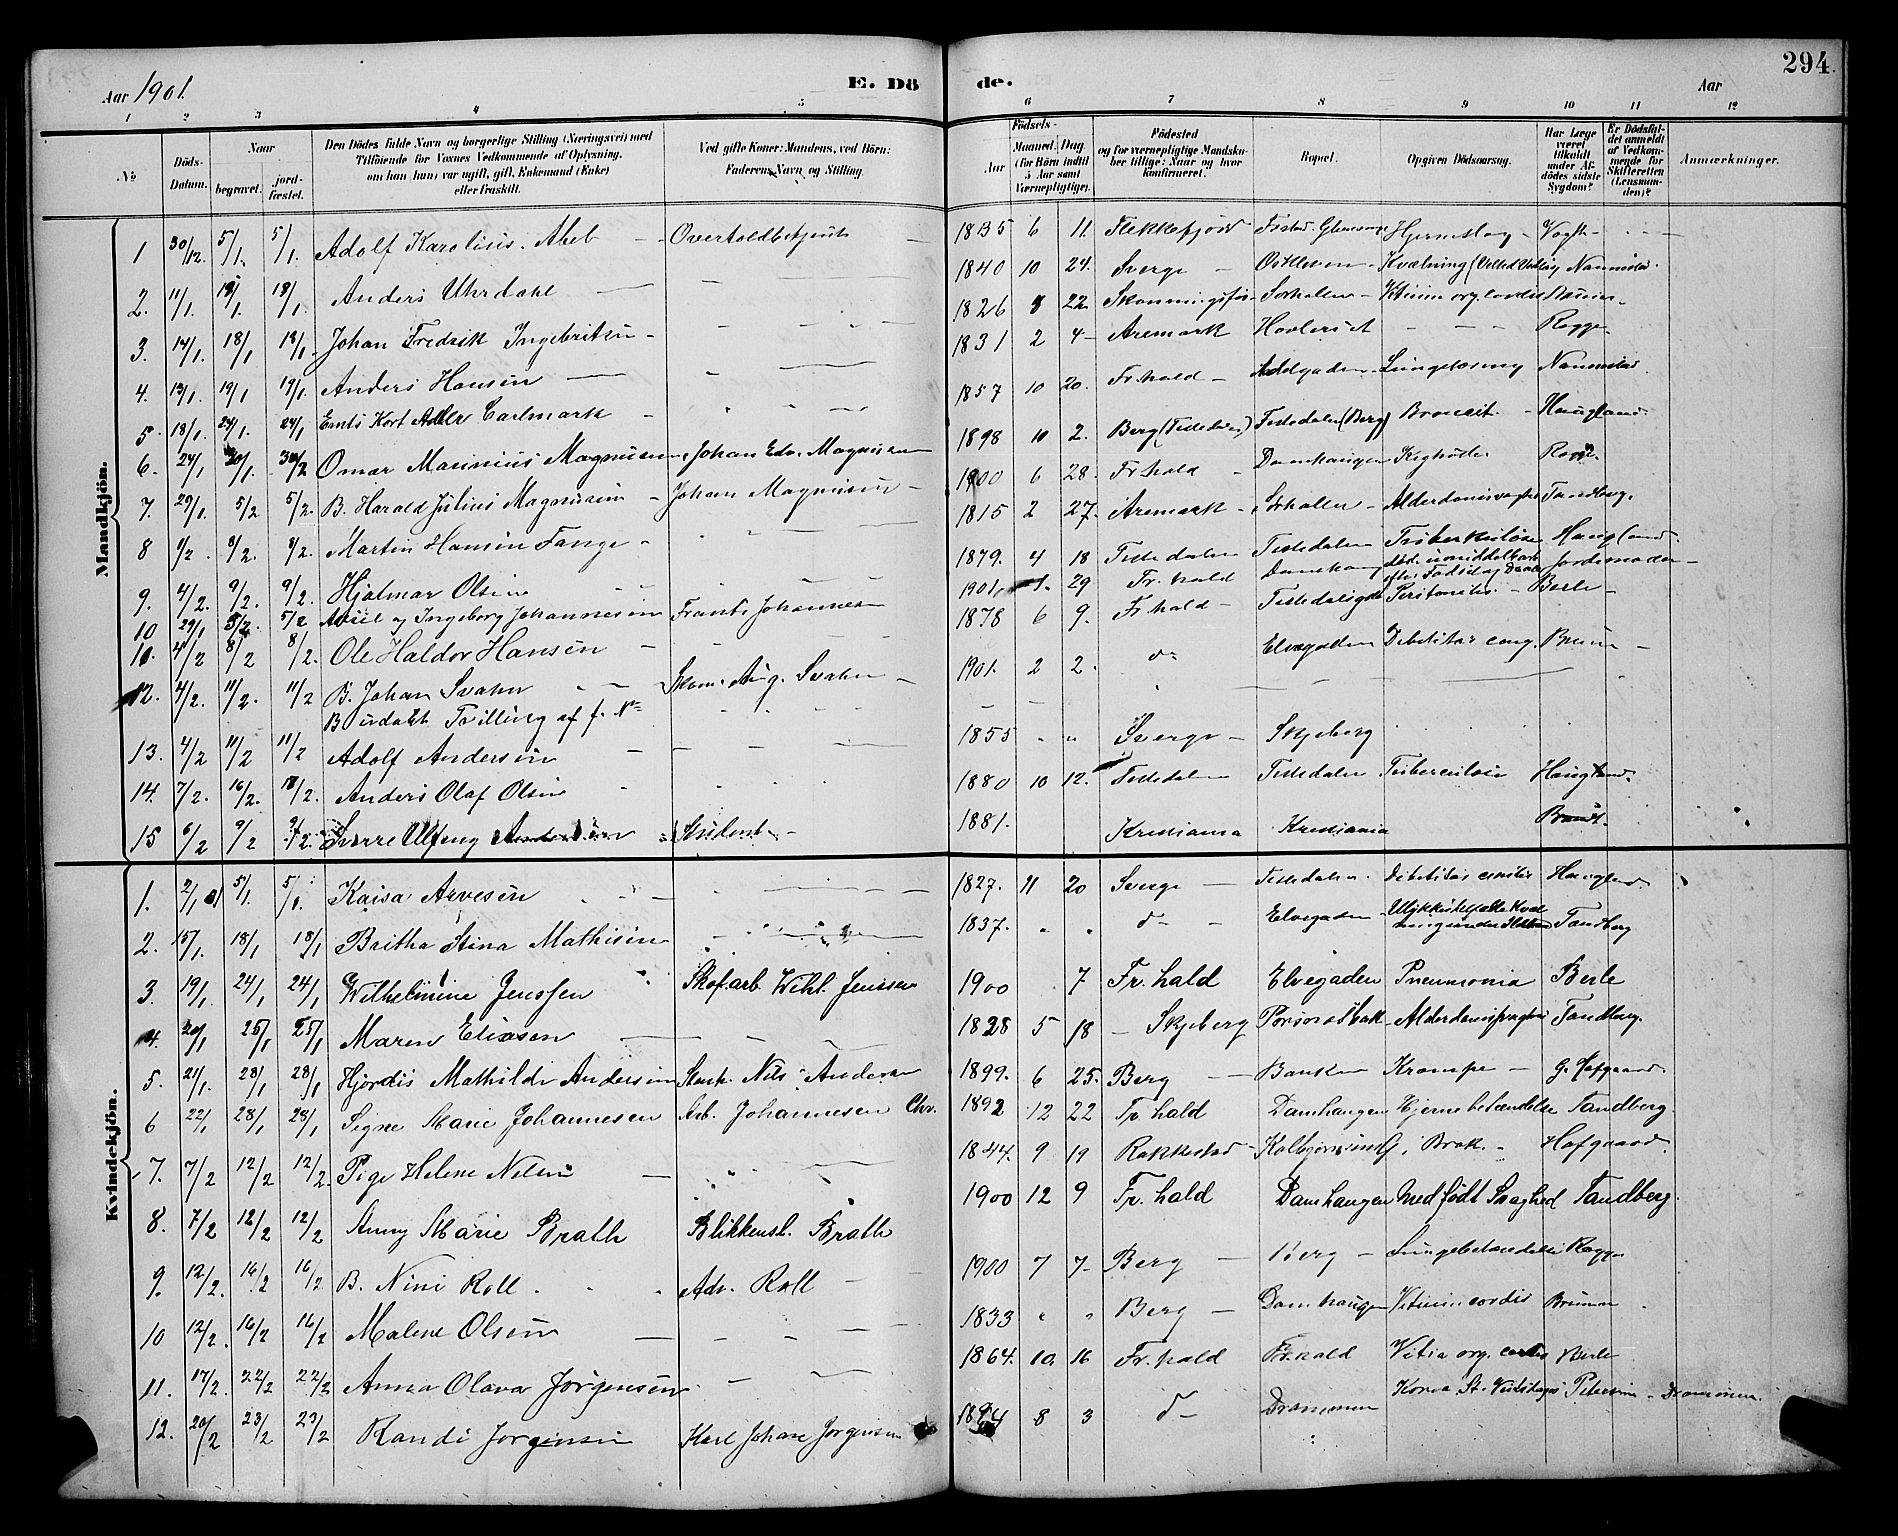 294.
Aar 1901. E. Dö de. Aar
1 2 3 4 5 6 7 8 9 10 11 12
No
Döds-Datum.
Naar
begravet. jord-fæstet.
Den Dödes fulde Navn og borgerlige Stilling (Næringsvei) med
Tilföiende for Voxnes Vedkommende af Oplysning,
om han (hun) var ugift, gift, Enkemand (Enke)
eller fraskilt.
Ved gifte Koner: Mandens, ved Börn:
Faderens Navn og Stilling.
Födsels-
Aar
Maaned. Dag.
(for Börn indtil
5 Aar samt
Værnepligtige).
Födested
og for værnepligtige Mandska-
ber tillige: Naar og hvor
konfirmeret.
Bopæl.
Opgiven Dödsaarsag.
Har Læge
været
tilkaldt
under Af-
dödes sidste
Sygdom?
Er Dödsfal-
det anmeldt
af Vedkom-
mende for
Skifteretten
(Lensman-
den)?
Anmærkninger.
Mandkjön.
1 30/12. 5/1. 5/1. Adolf Karolius Abel 1835 6 11. Flekkefjord Hjerneslag Vogt
2. 11/1. 18/1. 18/1. Anders Uhrdahl 1840 10 24. Sverge Kvælning Nannestad.
3. 14/1. 18/1 18/1. Johan Fredrik Ingebritsen 1826 8 22. Sørhallen
4. 13/1. 19/1 19/1. Anders Hansen 1831 2 4 Aremark Rogge
5. 18/1. 24/1. 24/1 Kort Adler Carlmark 1857 10 20. Fr.hald Nannestad.
6. 24/1 30/1. Omar Marinius Magnussen Johan Edv. Magnussen 1898 10 2. Berg (Tistedalen) Tistedalen (Berg) Broncit. Haugland.
7. 29/1. 5/2 5/2. B. Harald Julius Magnussen Johan Magnussen 1900 6 28. Fr.hald Damhaugen Kighoste
8 1/2. 8/2. 8/2. Martin Hansen Fange 1815 2 27. Aremark Sørhallen Tandberg.
9. 4/2. 9/2. 9/2. Hjalmar Olsen 1879. 4 18 Tistedalen Tistedalen Tuberkulose Haugland.
10 29/1 5/2. 5/2 og Ingeborg Johannessen Frants Johannesen 1901. 1. 29 Fr.hald død umiddelbart efter Fødsel Jordemoder
11. 4/2 8/2 8/2. Ole Haldor Hansen 1878 6 9. Fr.hald Peritonitis Berle
12. 4/2. 11/2. 11/2 B. Johan Svahn Aug. Svahn 1901. 2 2. do Elvegaden Debilitas cong. Bruun
B udøbt Tvilling af f. No
13. 4/2 11/2 11/2 Adolf Andersen 1855 Sverge Skjeberg
14. 7/2. 16/2. Anders Olaf Olsen 1880 10 12. Tistedalen Tistedalen Tuberculose Haugland.
15 6/2 9/2 9/2. Sverre Student 1881. Kristiania Kristiania Brandt.
Kvindekjön.
1. 2/1 01 5/1. 5/1. Kaisa Arvesen 1827. 11 20 Sverge Tistedalen. Debilitas senilis Haugland.
2. 15/1. 18/1 18/1 Britha Stina Mathisen 1837. do Elvegaden Tandberg
3. 19/1. 24/1 24/1 Wilhelmine Jenssen Skofarb. Wilh. Jenssen 1900 7 Fr.hald Elvegaden Pneumonia Berle
4. 20/1 25/1 25/1 Maren Eliasen 1828 5 18 Skjeberg Tandberg.
5. 21/1. 28/1 28/1 Hjørdis Mathilde Andersen Nils Andersen 1899. 6 25. Berg Banken Krampe G. Hofgaard.
6 22/1 28/1 28/1 Signe Marie Johannesen Arb. Johannesen Chr. 1892 12 22 Fr.hald Damhaugen Hjernebetændelse Tandberg.
7. 7/2 12/2 12/2. Pige Helene Nilsen 1844. 9 19 Rakkestad Brok Hofgaard.
8. 7/2 12/2 12/2 Anny Marie Brath Blikkensl. Brath 1900 12 9 Fr.hald Damhaugen Medfødt Svaghed Tandberg.
9. 12/2. 16/2 16/2 B. Nini Roll. Adv. Roll 1900 7 7 Berg Berg Lungebetændelse Rogge
10 12/2. 16/2 16/2 Malene Olsen 1833 Berg Damhaugen Vitium cordis Bruun
11. 17/2. 22/2 22/2 Anna Olava Jørgensen 1864. 10. 16 Fr.hald Fr.hald Vitia org. cordis Berle
12. 20/2 23/2 23/2 Randi Jørgensen Karl Johan Jørgensen 1894 8 3 do Drammen Petersen Drammen.